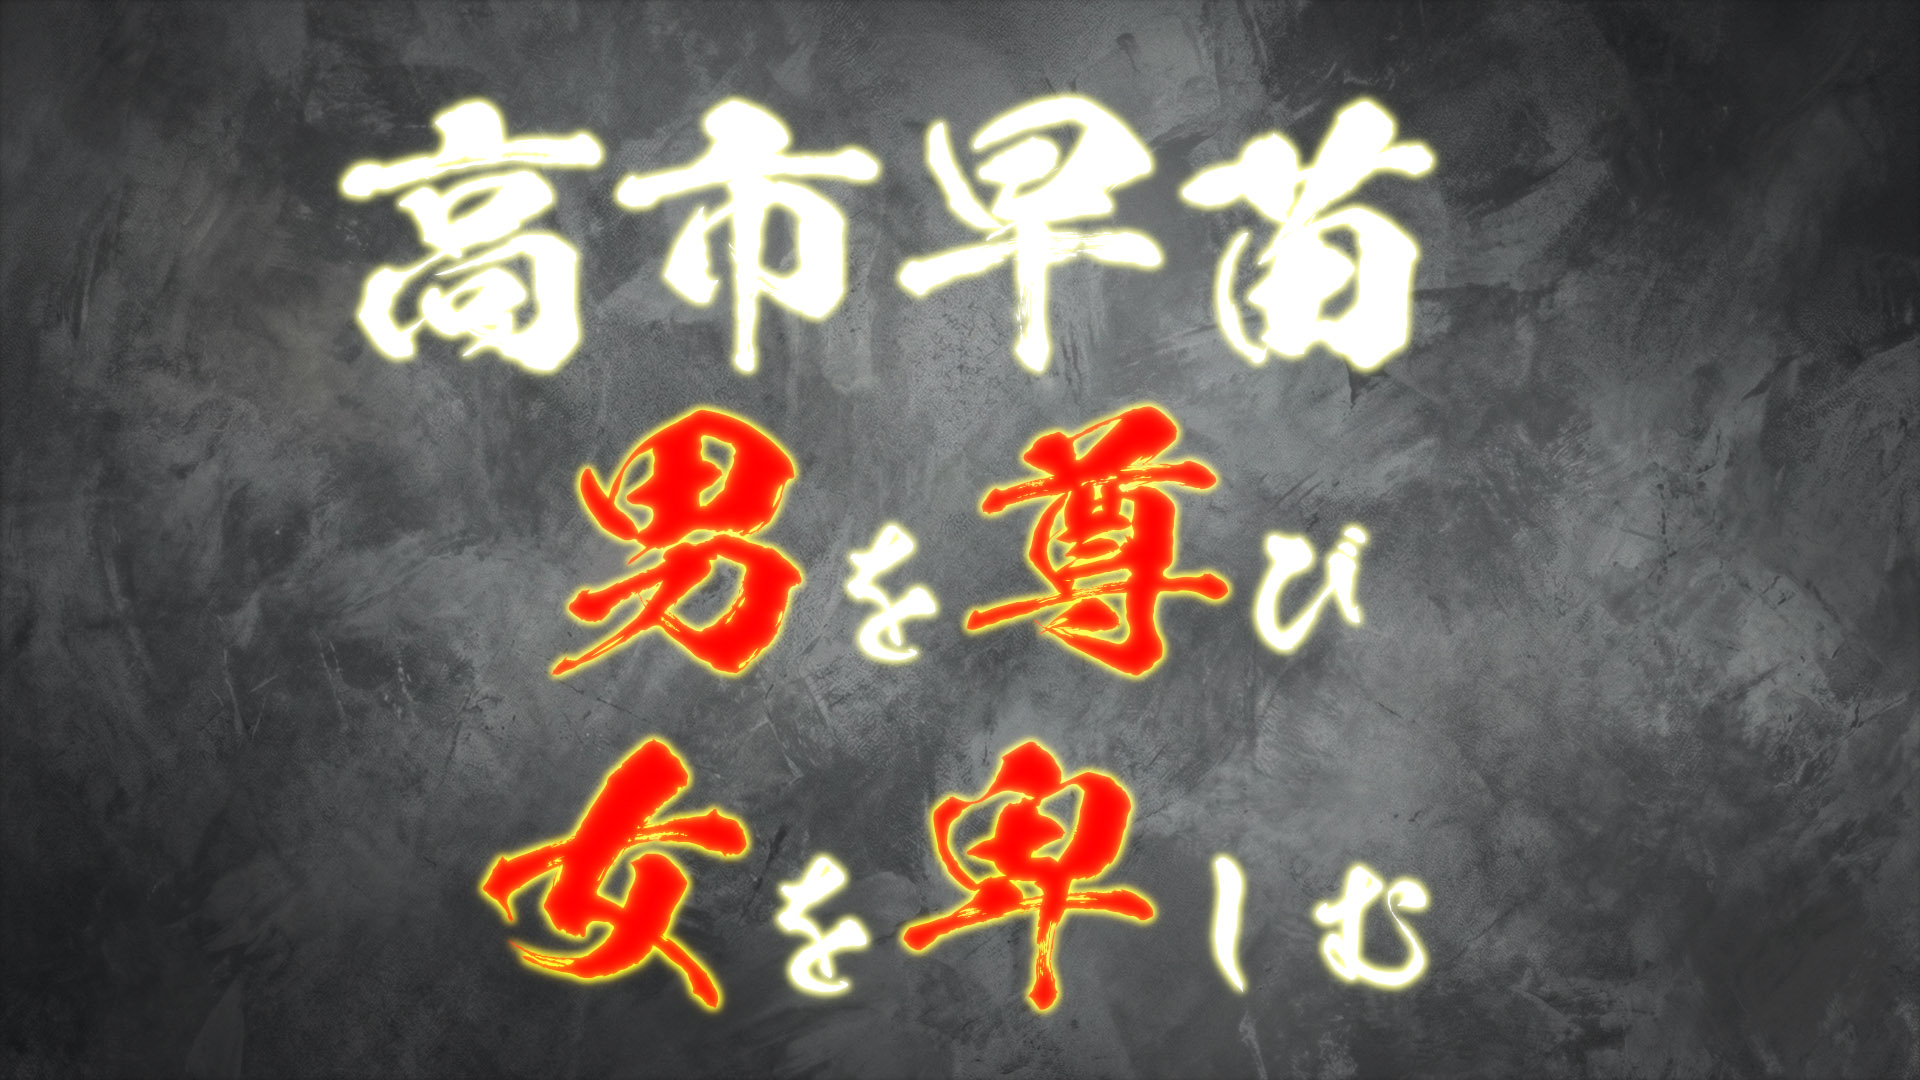 高市早苗
男を尊び
女を卑しむ